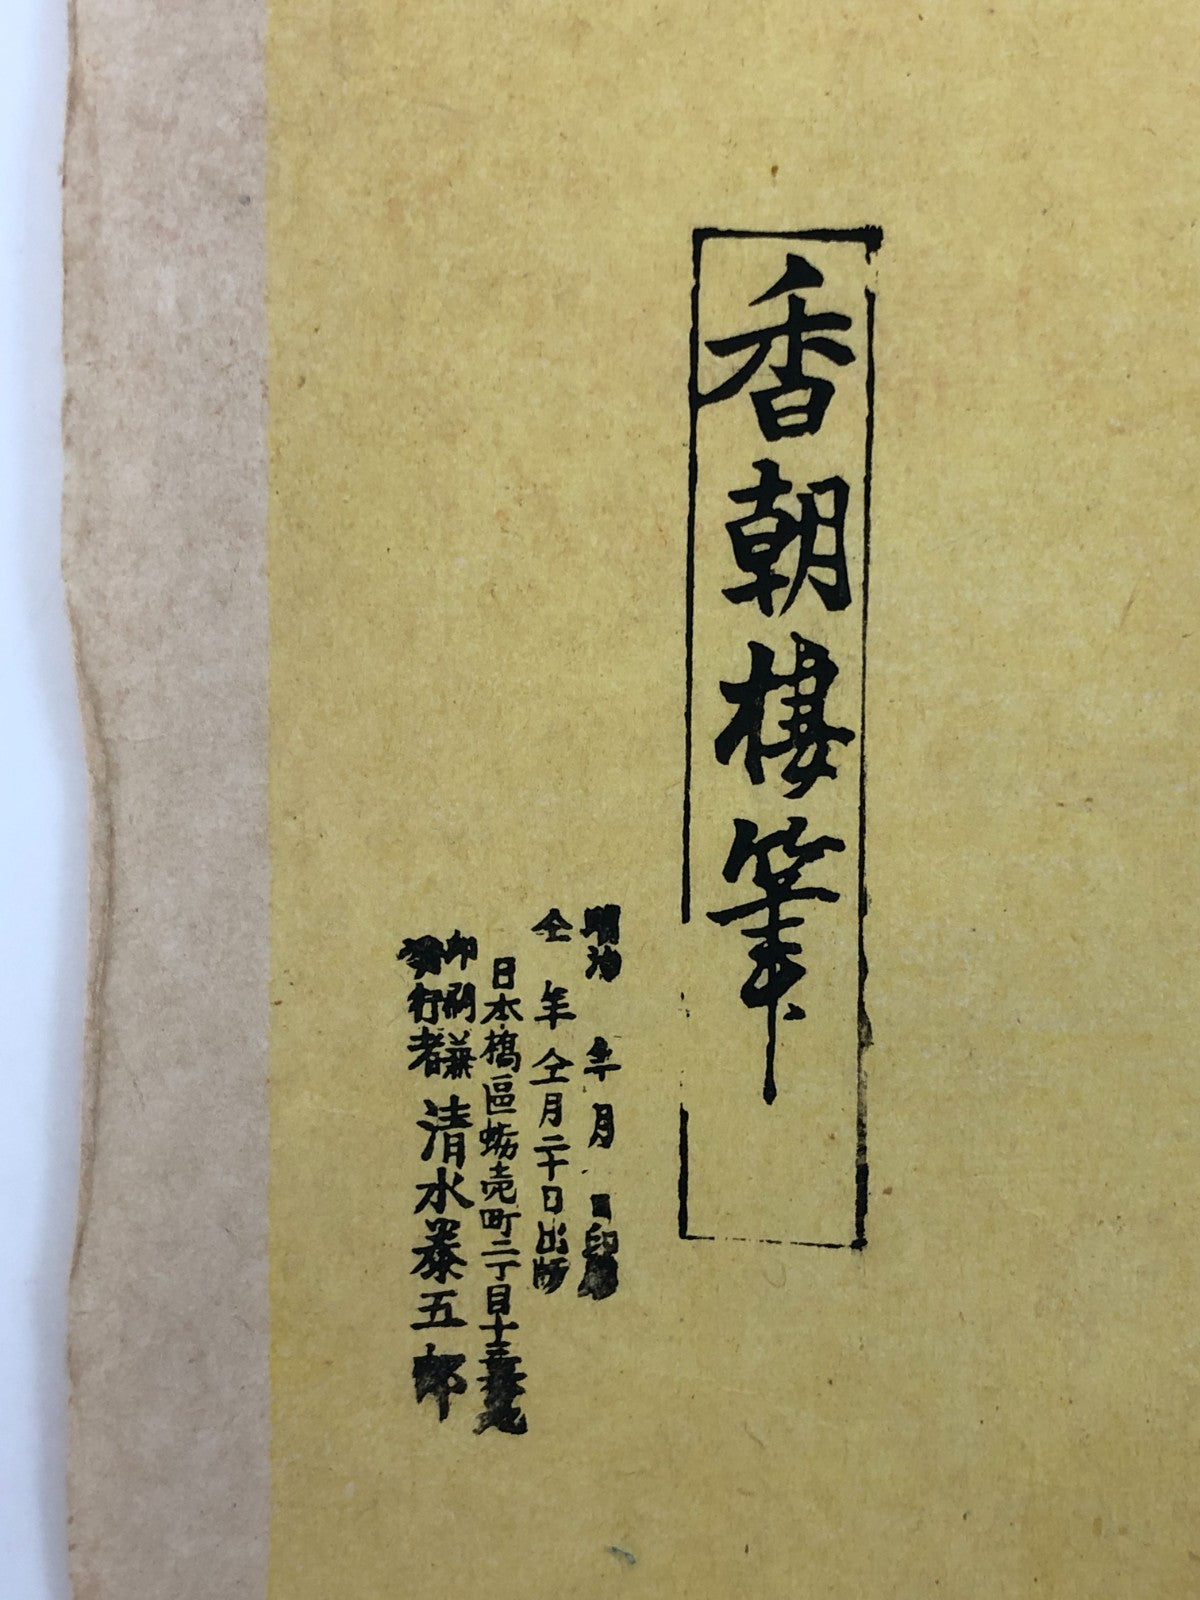 香朝樓筆
明治 年 月 日印
仝 年 仝月二十日出版
日本橋區蛎売町二丁目十三
印刷兼
發行者 清水 五郎